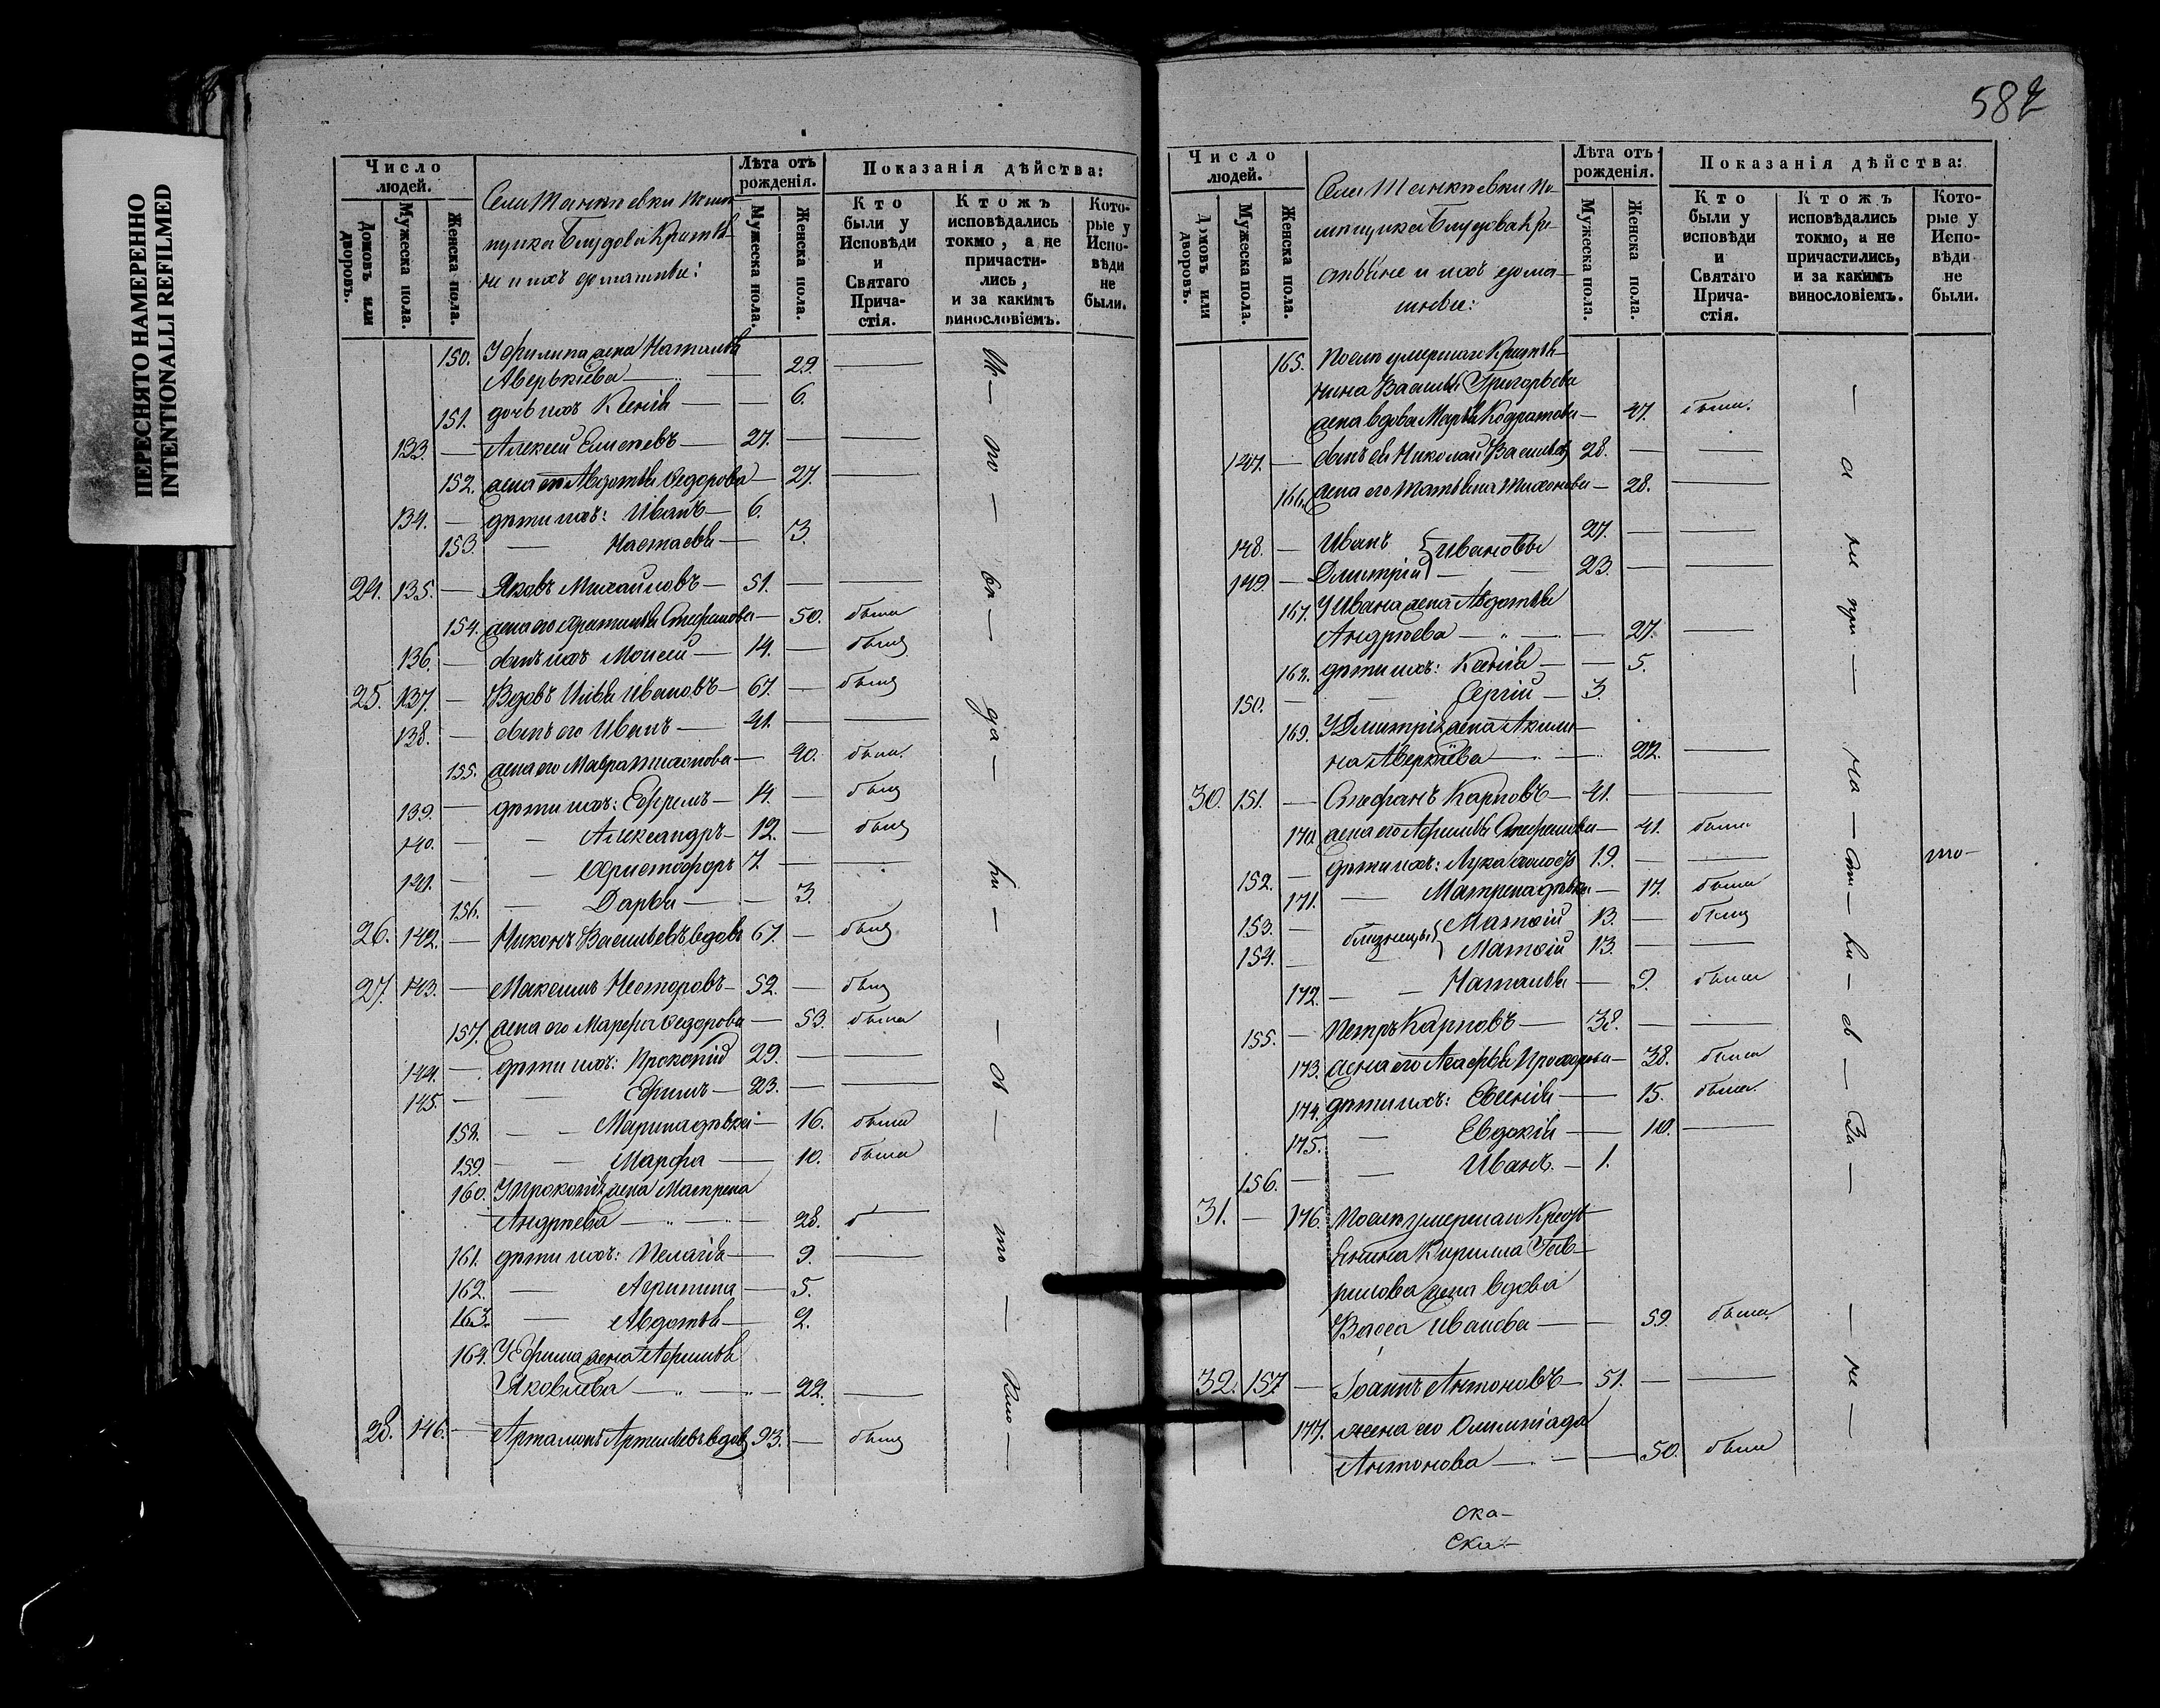 ПЕРЕСНЯТО НАМЕРЕННО
INTENTIONALLI REFILMED
Число людей.
Домовъ или дворовъ.
Мужеска пола.
Женска пола.
Села помѣ-
щика Блудова Крестья-
не и ихъ домашніе:
Лѣта отъ рожденія.
Мужеска пола.
Женска пола.
Показанія дѣйства:
Кто были у Исповѣди и Святаго Прича-стія.
Ктожъ исповѣдались токмо, а не причасти-лись, и за какимъ винословіемъ.
Кото-рые у Испо-вѣди не были.
150. У Филипа жена Наталья
Аверькіева — 29. —
151. дочь ихъ Ксенія — 6.
133. — Алексей — 27. —
152. жена его Авдотья Ѳедорова — 27. —
134. — дѣти ихъ: Иванъ — 6.
153. — Настасья — 3.
24. 135. — Яковъ Михайловъ — 51. —
154. жена его Стефанова — 50. была
136. — сынъ ихъ Моисей — 14. — былъ
25. 137. — Вдовъ Илья Ивановъ — 67. — былъ
138. — сынъ его Иванъ — 41. —
155. жена его Мавра Тихонова — 40. была.
139. — дѣти ихъ: Ефремъ — 14. — былъ
140. — Александръ — 12. — былъ
141. — Христофоръ 7. —
156. — Дарья — 3.
26. 142. — Никонъ Васильевъ вдовъ 67. — былъ
27. 143. — Максимъ Несторовъ — 52. — былъ
157. жена его Марфа Ѳедорова — 53. была
144. — дѣти ихъ: Прокопій 29. —
145. — Ефимъ — 23. —
158. — Марина дѣвка — 16. была
159. — Марфа — 10. была
160. У Прокопія жена Матрена
Андреева — 28.
161. дѣти ихъ: Пелагія — 9. —
162. — Агрипина — 5.
163. — Авдотья — 2.
164. У Ефима жена Афимья
Яковлева — 22. —
28. 146. — Артамонъ вдовъ 93. — былъ
582
Число людей.
Домовъ или дворовъ.
Мужеска пола.
Женска пола.
Села По-
мѣщика Блудова Кре-
стьяне и ихъ дома-
шніе:
Лѣта отъ рожденія.
Мужеска пола.
Женска пола.
Показанія дѣйства:
Кто были у исповѣди и Святаго Прича-стія.
Ктожъ исповѣдались токмо, а не причастились, и за какимъ винословіемъ.
Кото-рые у Испо-вѣди не были.
165. Послѣ умершаго Крестья-
нина Василья Григорьева
жена вдова Марья Кодратова — 47. была.
147. — сынъ ея Николай Васильевъ 28. —
166. жена его Татьяна Тихонова — 28. —
148. — Иванъ } Ивановы 27. —
149. — Дмитрій } — 23. —
167. У Ивана жена Авдотья
Андреева — 27. —
168. дѣти ихъ: Ксенія — 5.
150. — Сергій — 3.
169. У Дмитрія жена Акили-
на Аверкіева — 22. —
30. 151. — Стефанъ Карповъ — 41. —
170. жена его Афимья Стефанова — 41. была
152. — дѣти ихъ: Лука холостъ 19. —
171. — Матрена дѣвка — 17. была
153. — близнецы { Матѳій 13. — былъ
154. — { Матѳій 13. —
172. — Наталья — 9. была
155. — Петръ Карповъ — 38. —
173. жена его Агафья Прохорова — 38. была
174. дѣти ихъ: Евгенія — 15. была.
175. — Евдокія — 10. —
156. — Иванъ — 1.
31. — 176. Послѣ умершаго Крест-
янина Кирилла Гав-
рилова жена вдова
Васса Иванова — 59. была.
32. 157 — Іоаннъ Антоновъ — 51. —
177. жена его Олимпіада
Антонова — 50. была
ска-
ска-